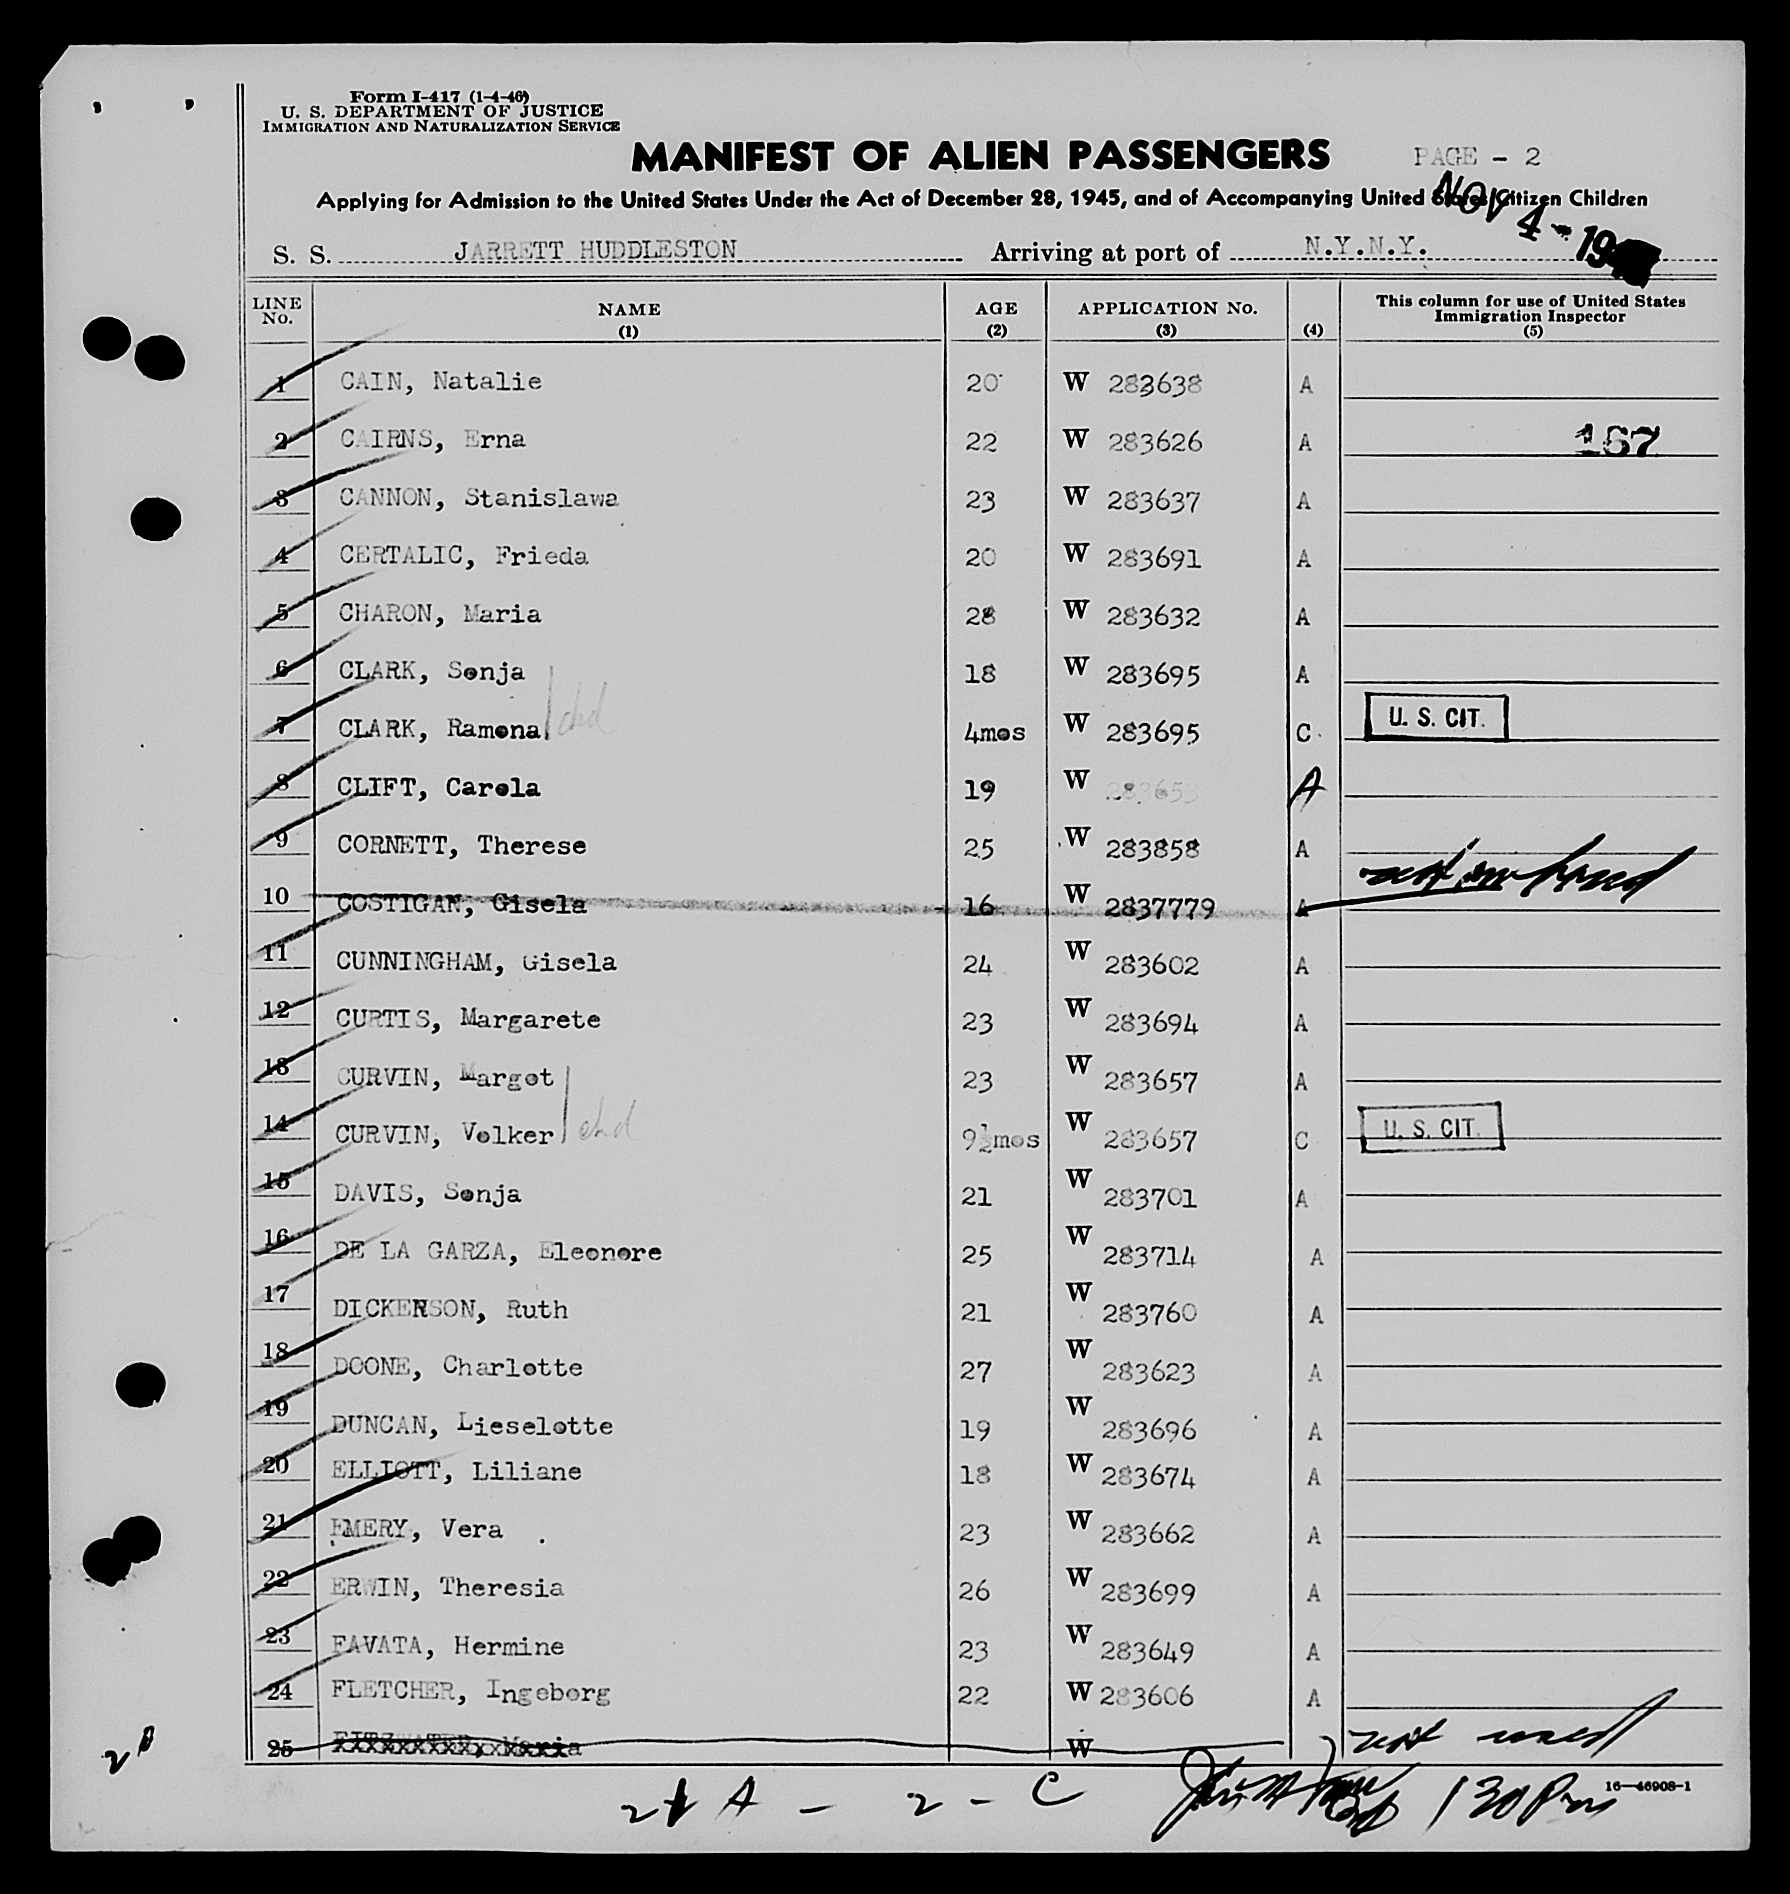 Form I-417 (1-4-46)
U. S. DEPARTMENT OF JUSTICE
IMMIGRATION AND NATURALIZATION SERVICE
MANIFEST OF ALIEN PASSENGERS PAGE - 2
Applying for Admission to the United States Under the Act of December 28, 1945, and of Accompanying United States Citizen Children
NOV 4 - 19
S. S. JARRETT HUDDLESTON Arriving at port of N.Y.N.Y.
LINE No. NAME (1) AGE (2) APPLICATION No. (3) (4) This column for use of United States Immigration Inspector (5)
1 CAIN, Natalie 20 W 283638 A
2 CAIRNS, Erna 22 W 283626 A 167
3 CANNON, Stanislawa 23 W 283637 A
4 CERTALIC, Frieda 20 W 283691 A
5 CHARON, Maria 28 W 283632 A
6 CLARK, Sonja 18 W 283695 A
7 CLARK, Ramona chd 4mos W 283695 C U. S. CIT.
8 CLIFT, Carola 19 W 283653 A
9 CORNETT, Therese 25 W 283858 A
10 COSTIGAN, Gisela 16 W 2837779 A not on board
11 CUNNINGHAM, Gisela 24 W 283602 A
12 CURTIS, Margarete 23 W 283694 A
13 CURVIN, Margot 23 W 283657 A
14 CURVIN, Volker chd 9½mos W 283657 C U. S. CIT.
15 DAVIS, Sonja 21 W 283701 A
16 DE LA GARZA, Eleonore 25 W 283714 A
17 DICKERSON, Ruth 21 W 283760 A
18 DOONE, Charlotte 27 W 283623 A
19 DUNCAN, Lieselotte 19 W 283696 A
20 ELLIOTT, Liliane 18 W 283674 A
21 EMERY, Vera 23 W 283662 A
22 ERWIN, Theresia 26 W 283699 A
23 FAVATA, Hermine 23 W 283649 A
24 FLETCHER, Ingeborg 22 W 283606 A
25 W not used
21 A - 2 - C 130 Pm
16-46908-1